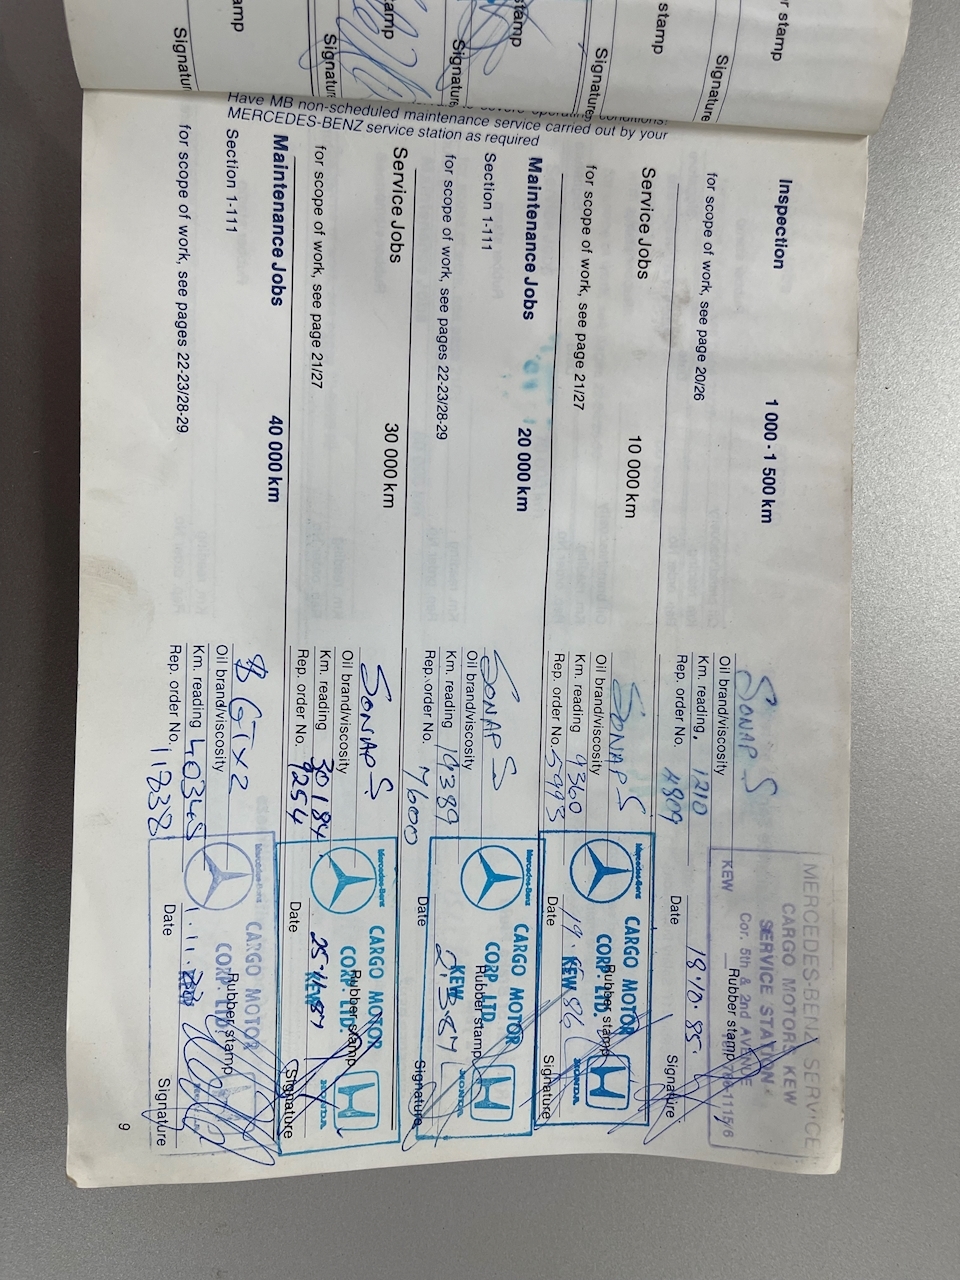 Have MB non-scheduled maintenance service carried out by your
MERCEDES-BENZ service station as required
Inspection 1 000 - 1 500 km
for scope of work, see page 20/26
SONAP S
Oil brand/viscosity
Km. reading, 1210
Rep. order No. 4809
MERCEDES-BENZ SERVICE
CARGO MOTORS KEW
SERVICE STATION
Cor. 5th & 2nd AVENUE
KEW
Rubber stamp
Date 18.10.85.
Signature
Service Jobs 10 000 km
for scope of work, see page 21/27
SONAP S
Oil brand/viscosity
Km. reading 9360
Rep. order No. 5993
Mercedes-Benz
CARGO MOTOR
CORP. LTD.
KEW
HONDA
Rubber stamp
Date
Signature
Maintenance Jobs 20 000 km
Section 1-111
for scope of work, see pages 22-23/28-29
SONAP S
Oil brand/viscosity
Km. reading 19389
Rep. order No. 7600
Mercedes-Benz
CARGO MOTOR
CORP. LTD
KEW
HONDA
Rubber stamp
Date
Signature
Service Jobs 30 000 km
for scope of work, see page 21/27
SONAP S
Oil brand/viscosity
Km. reading 30184
Rep. order No. 9254
Mercedes-Benz
CARGO MOTOR
CORP. LTD.
KEW
HONDA
Rubber stamp
Date
Signature
Maintenance Jobs 40 000 km
Section 1-111
for scope of work, see pages 22-23/28-29
GTX2
Oil brand/viscosity
Km. reading 40348
Rep. order No. 11838
Mercedes-Benz
CARGO MOTOR
CORP. LTD.
Rubber stamp
Date 1.11.
Signature
9
Signature
Signature
Signature
Signature
Signature
stamp